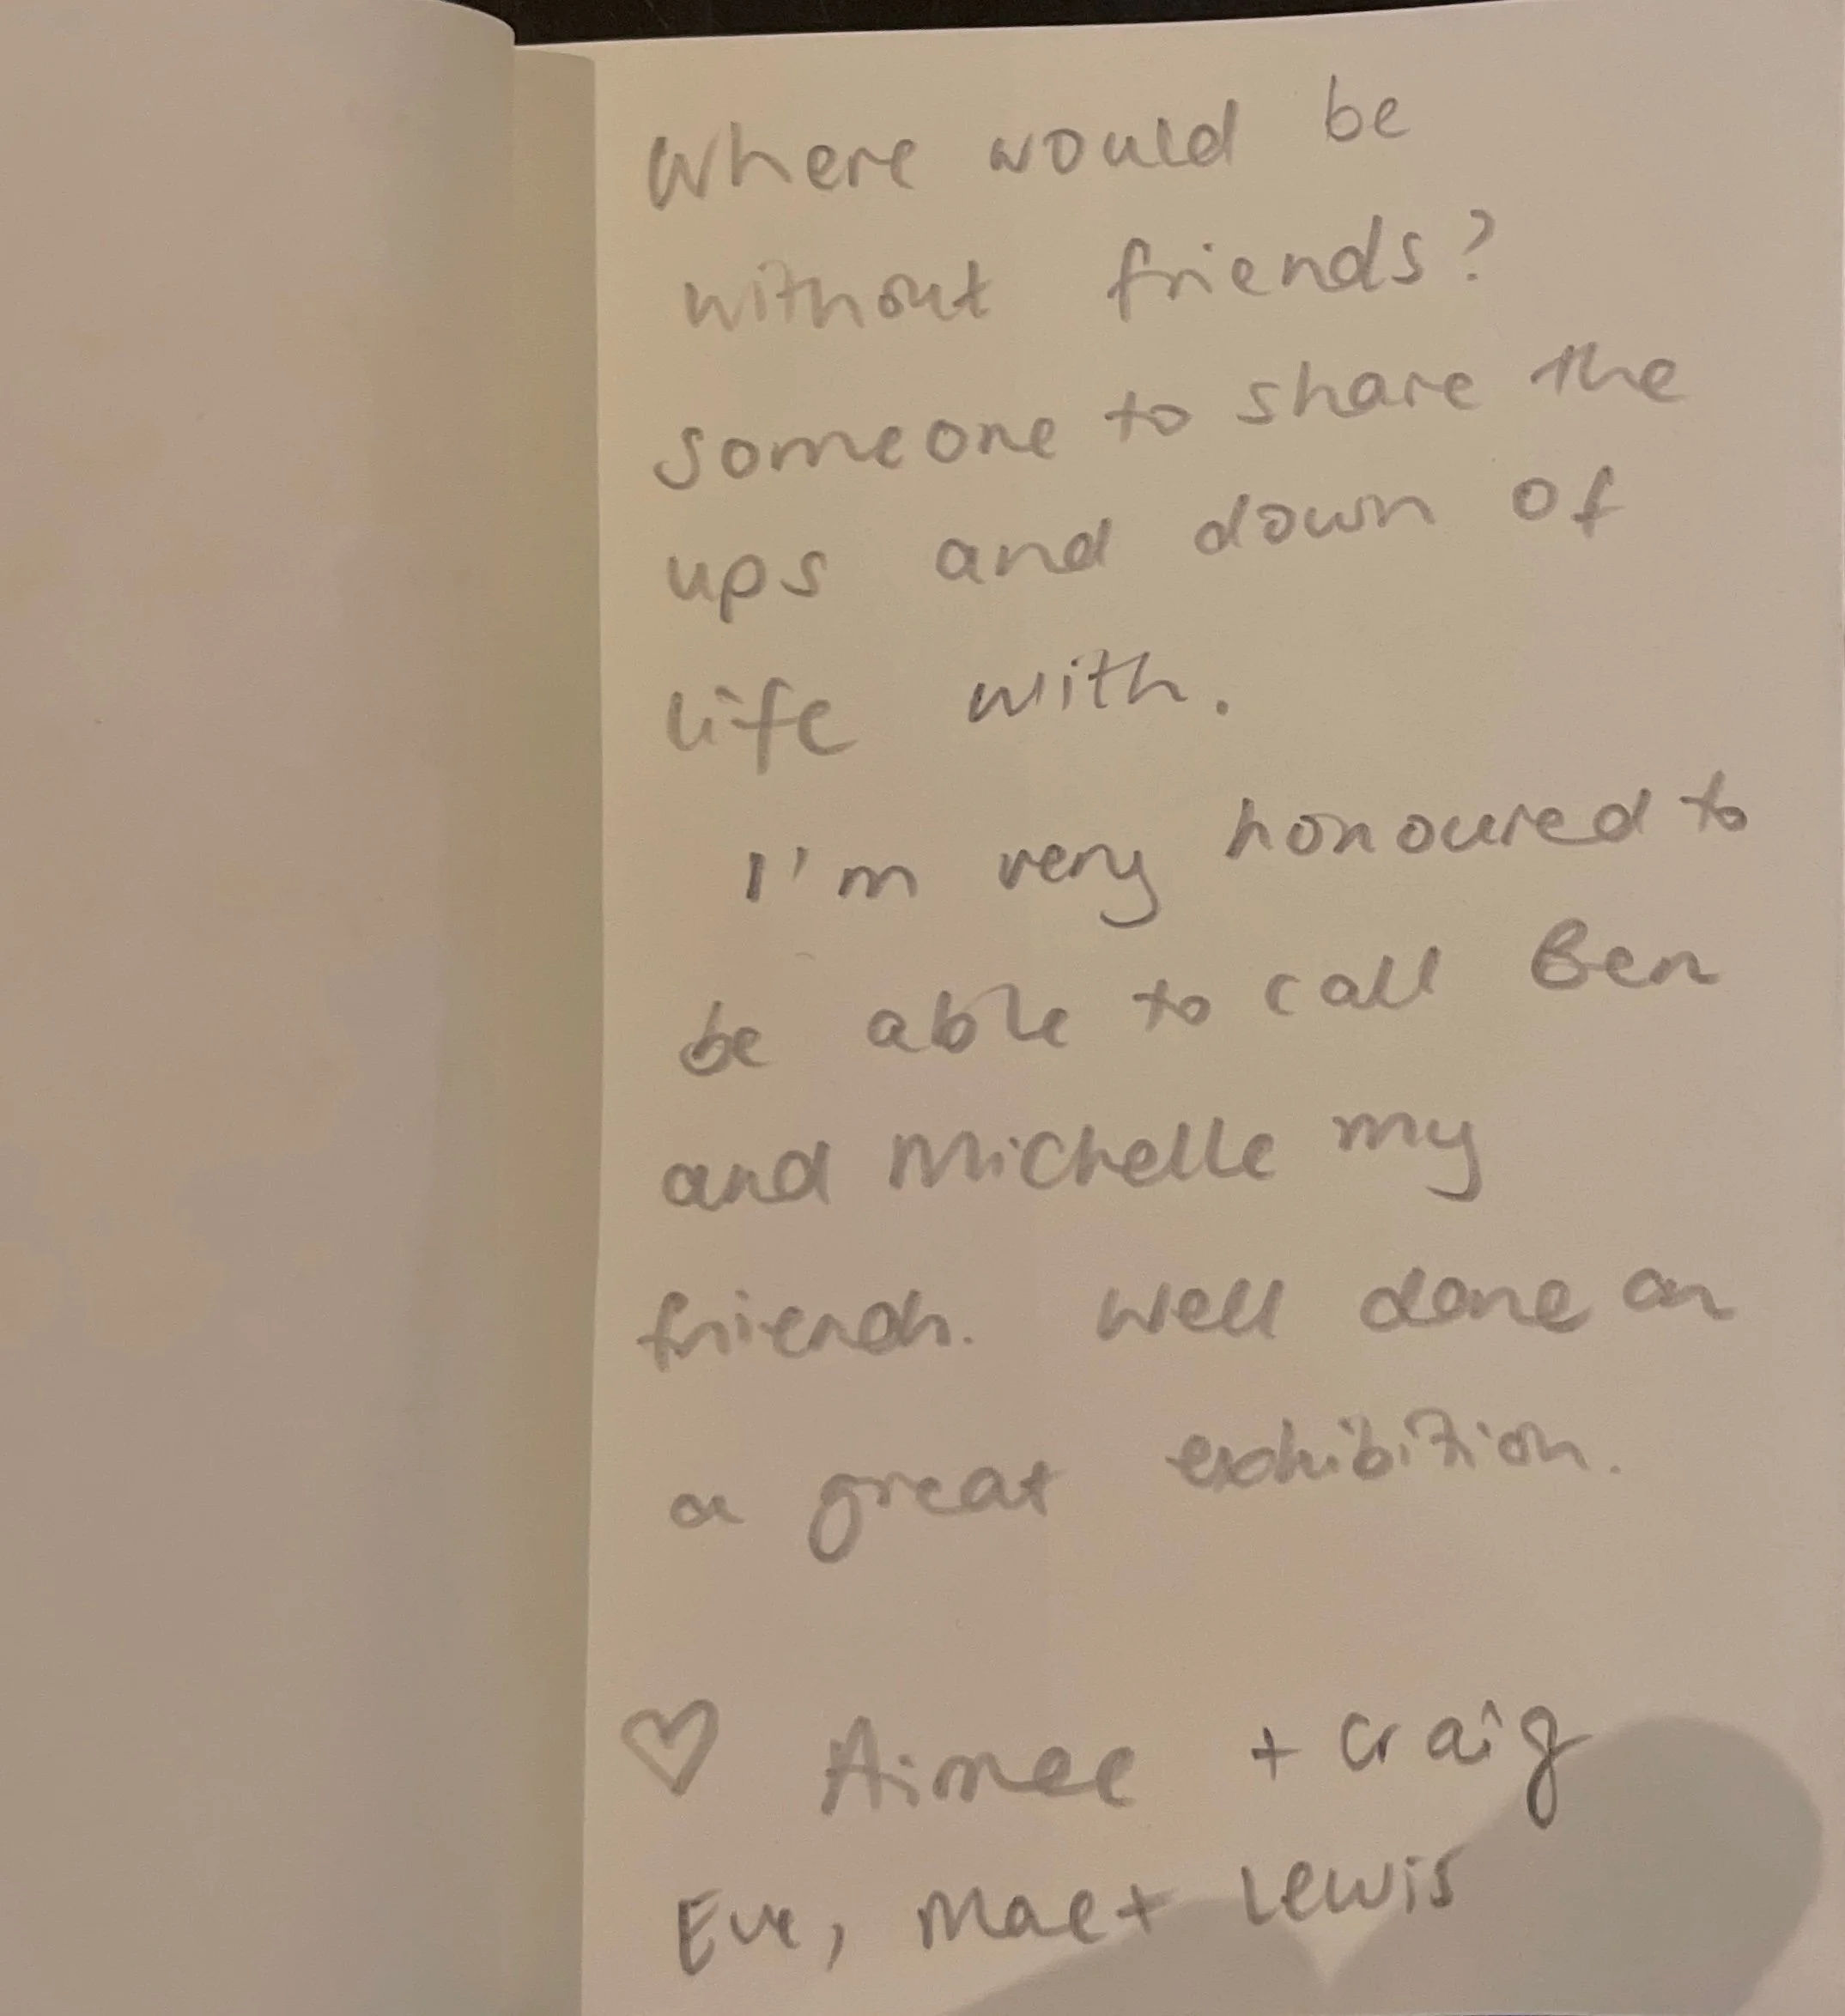 Where would be
without friends?
someone to share the
ups and down of
life with.
I'm very honoured to
be able to call Ben
and Michelle my
friends. Well done on
a great exhibition.
♡ Aimee + Craig
Eve, Mae + Lewis